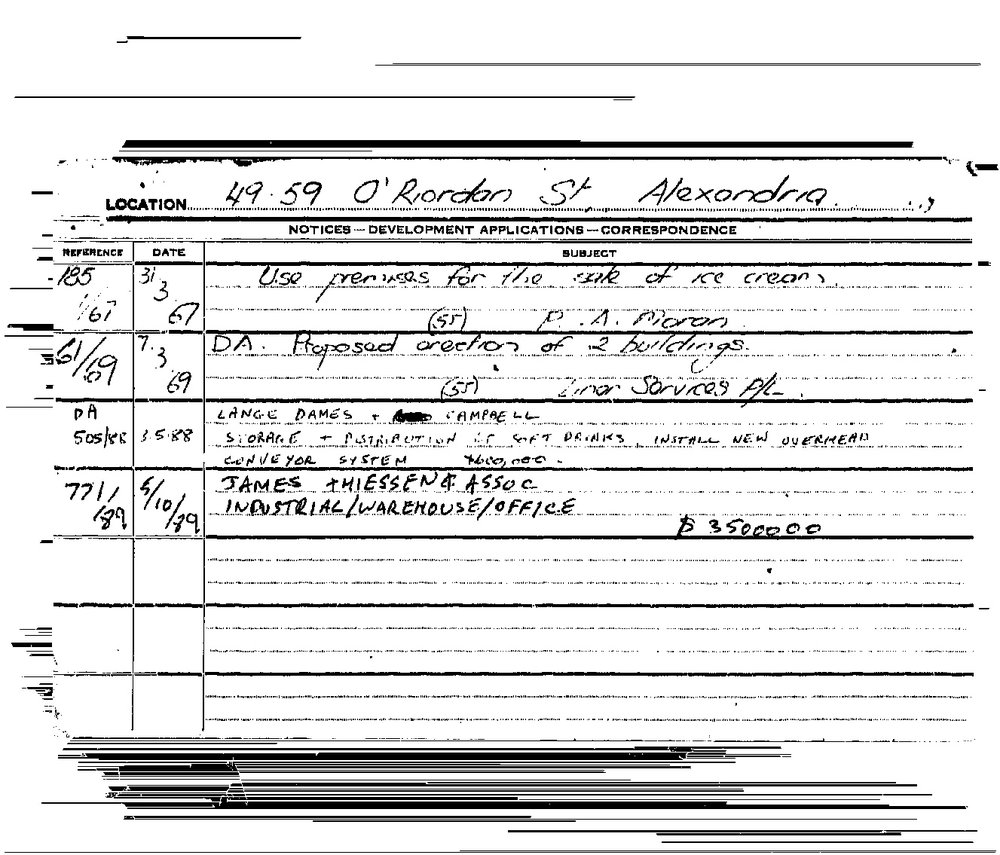 LOCATION 49-59 O'Riordan St, Alexandria
NOTICES — DEVELOPMENT APPLICATIONS — CORRESPONDENCE
REFERENCE DATE SUBJECT
185 31 Use premises for the sale of ice cream.
/67 3
67 (55) A. Moran
61/69 7. DA. Proposed erection of 2 buildings.
3
69 (55) Liner Services P/L
DA LANGE DAMES + CAMPBELL
505/88 3.5.88 STORAGE + DISTRIBUTION OF SOFT DRINKS, INSTALL NEW OVERHEAD
CONVEYOR SYSTEM
771/ 5/10 JAMES THIESSEN & ASSOC
/89 /89 INDUSTRIAL/WAREHOUSE/OFFICE
$ 3500000